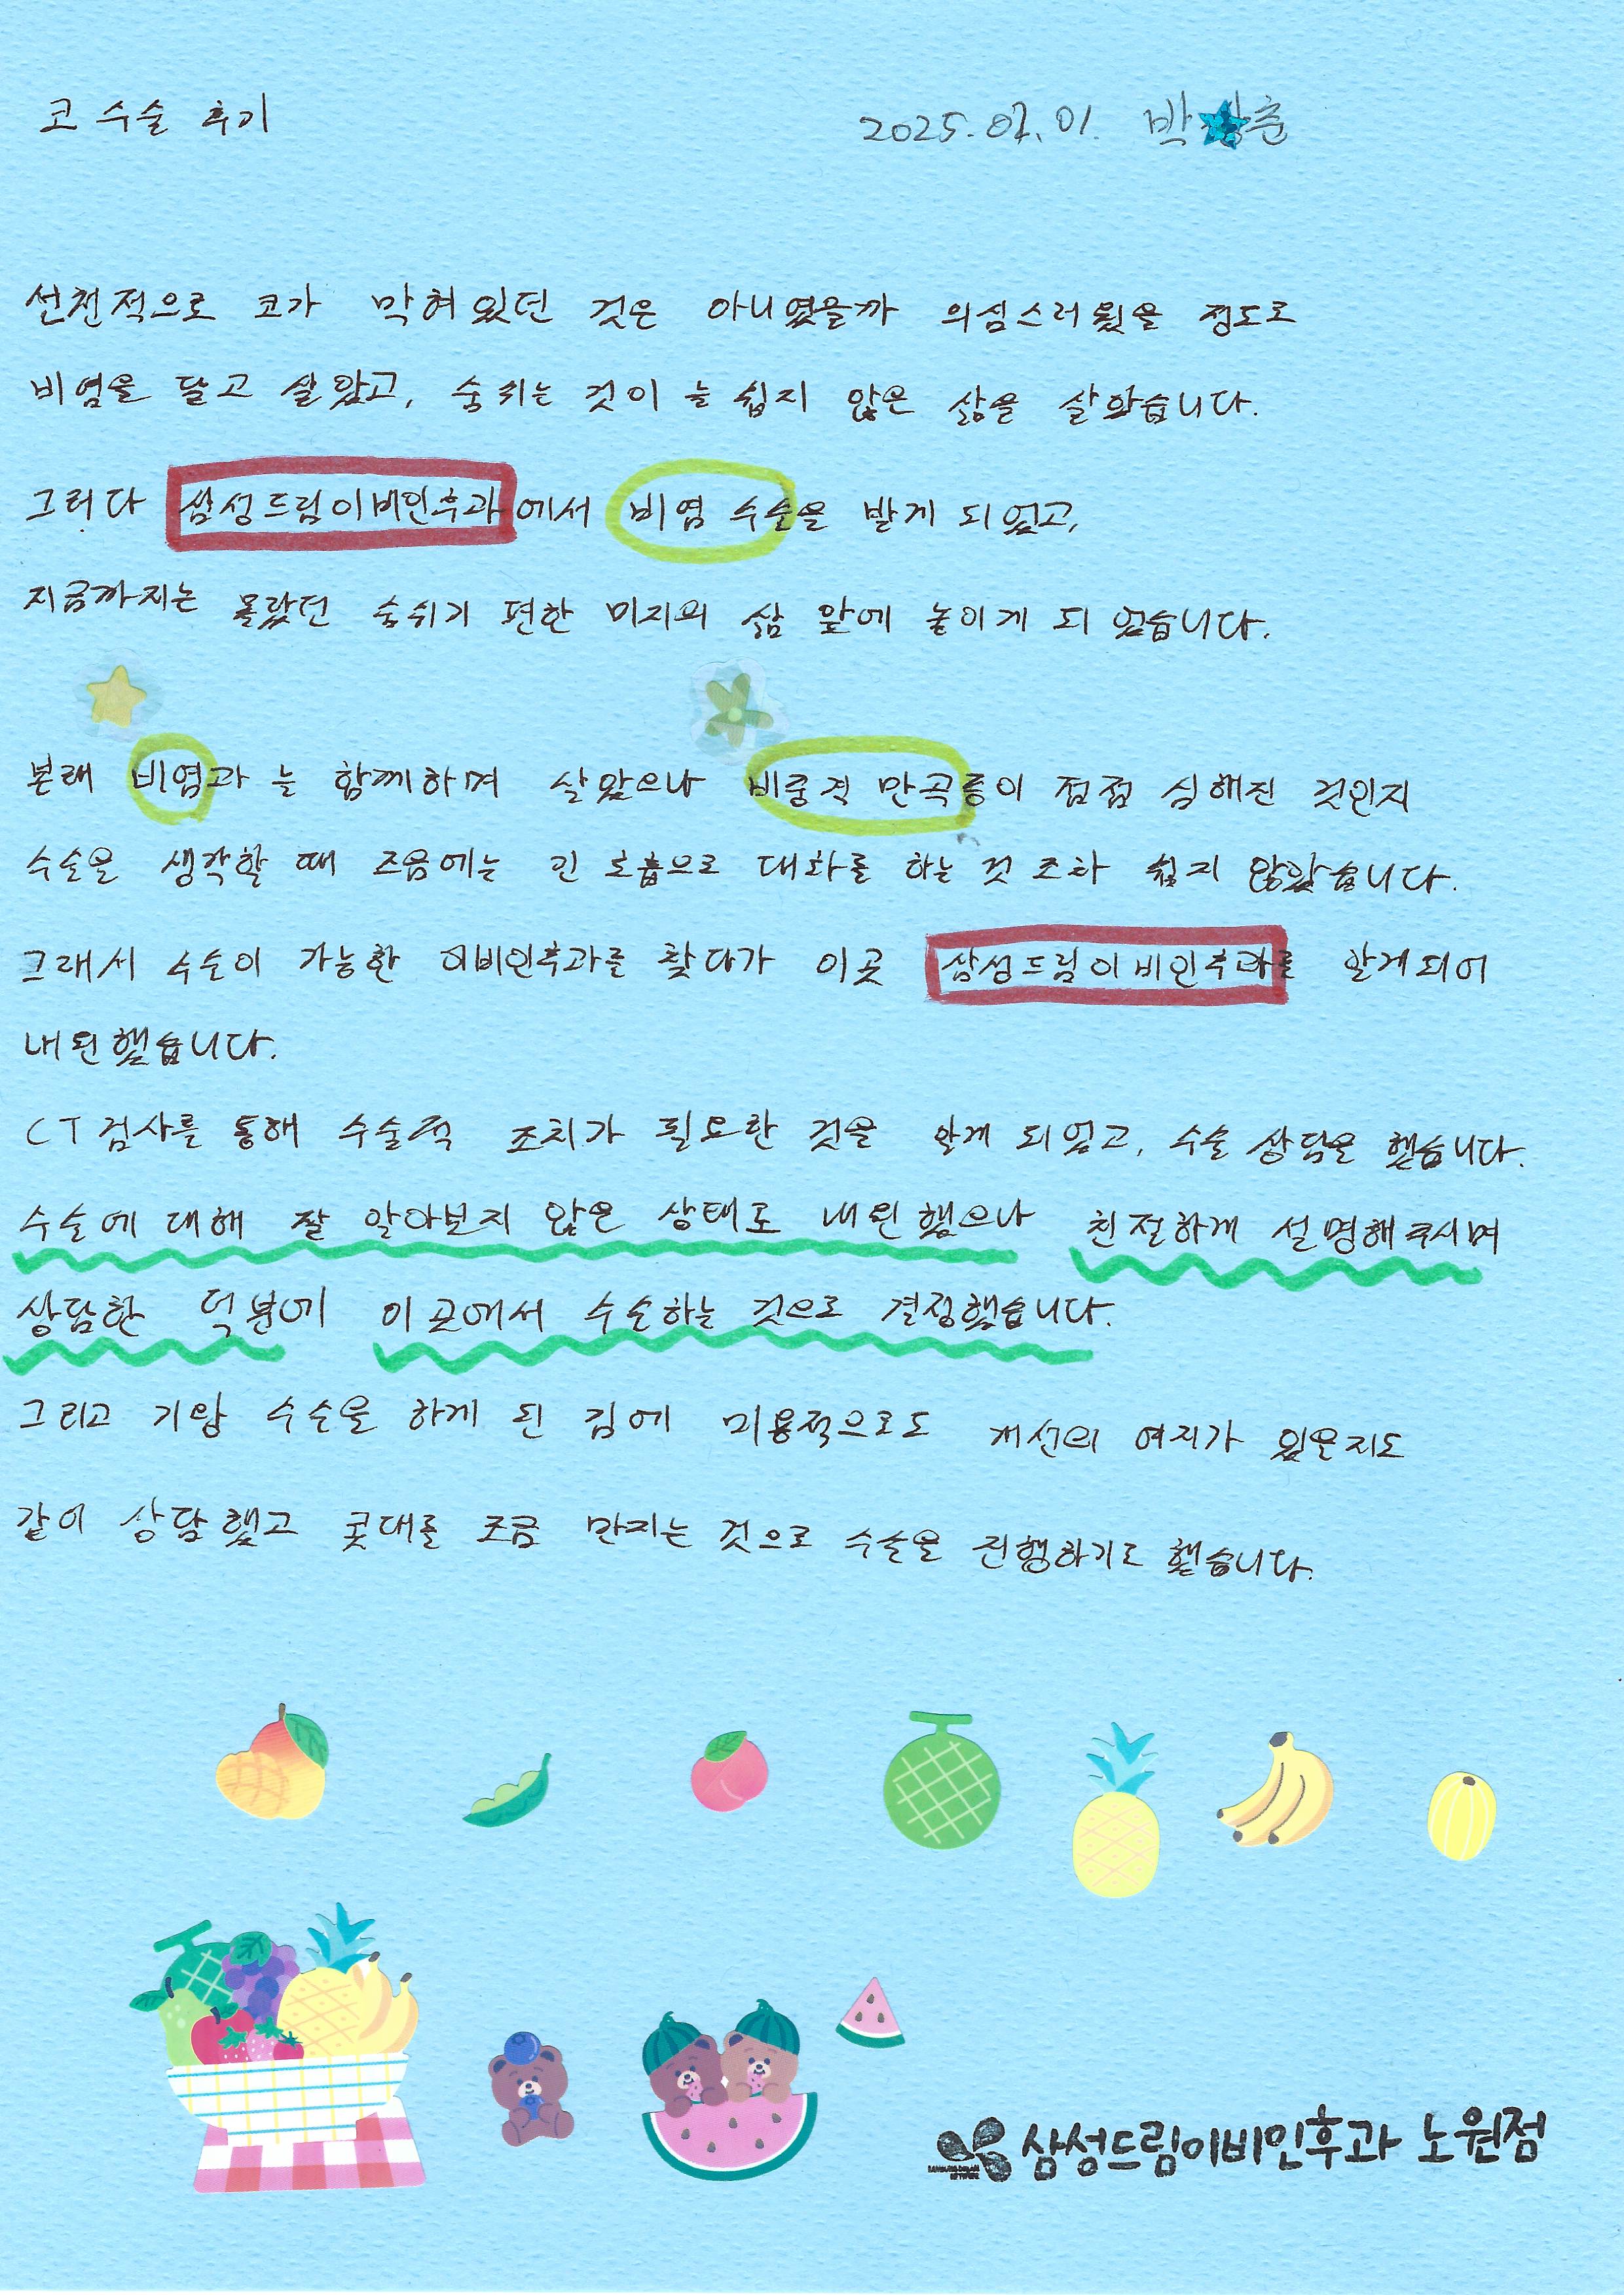 코 수술 후기
2025.07.01. 박 춘
선천적으로 코가 막혀있던 것은 아니였을까 의심스러웠을 정도로
비염을 달고 살았고, 숨쉬는 것이 늘 쉽지 않은 삶을 살았습니다.
그러다 삼성드림이비인후과에서 비염 수술을 받게 되었고,
지금까지는 몰랐던 숨쉬기 편한 미지의 삶 앞에 놓이게 되었습니다.
본래 비염과 늘 함께하며 살았으나 비중격 만곡증이 점점 심해진 것인지
수술을 생각할 때 즈음에는 긴 호흡으로 대화를 하는 것 조차 쉽지 않았습니다.
그래서 수술이 가능한 이비인후과를 찾다가 이곳 삼성드림이비인후과를 알게되어
내원했습니다.
CT검사를 통해 수술적 조치가 필요한 것을 알게 되었고, 수술 상담을 했습니다.
수술에 대해 잘 알아보지 않은 상태로 내원했으나 친절하게 설명해주시며
상담한 덕분에 이곳에서 수술하는 것으로 결정했습니다.
그리고 기왕 수술을 하게 된 김에 미용적으로도 개선의 여지가 있는지도
같이 상담했고 콧대를 조금 만지는 것으로 수술을 진행하기로 했습니다.
삼성드림이비인후과 노원점